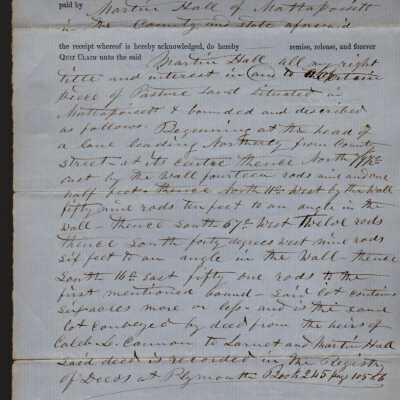 paid by Martin Hall of Mattapoisett
in the County and state aforesaid
the receipt whereof is hereby acknowledged, do hereby remise, release, and forever
QUIT CLAIM unto the said Martin Hall all my right
title and interest in and to a certain
piece of Pasture Land situated in
Mattapoisett & bounded and described
as follows. Beginning at the head of
a lane leading Northerly from County
Street at its centre thence North
East by the wall fourteen rods nine and one
half feet thence North 11° West by the Wall
fifty nine rods ten feet to an angle in the
Wall - thence South 67° West Twelve rods
thence South forty degrees West nine rods
six feet to an angle in the Wall - thence
South 16° East fifty one rods to the
first mentioned bound - Said lot contains
six acres more or less - and is the same
lot conveyed by deed from the heirs of
Caleb L. Cannon to and Martin Hall
Said deed is recorded in the Registry
of Deeds at Plymouth Book 245 page